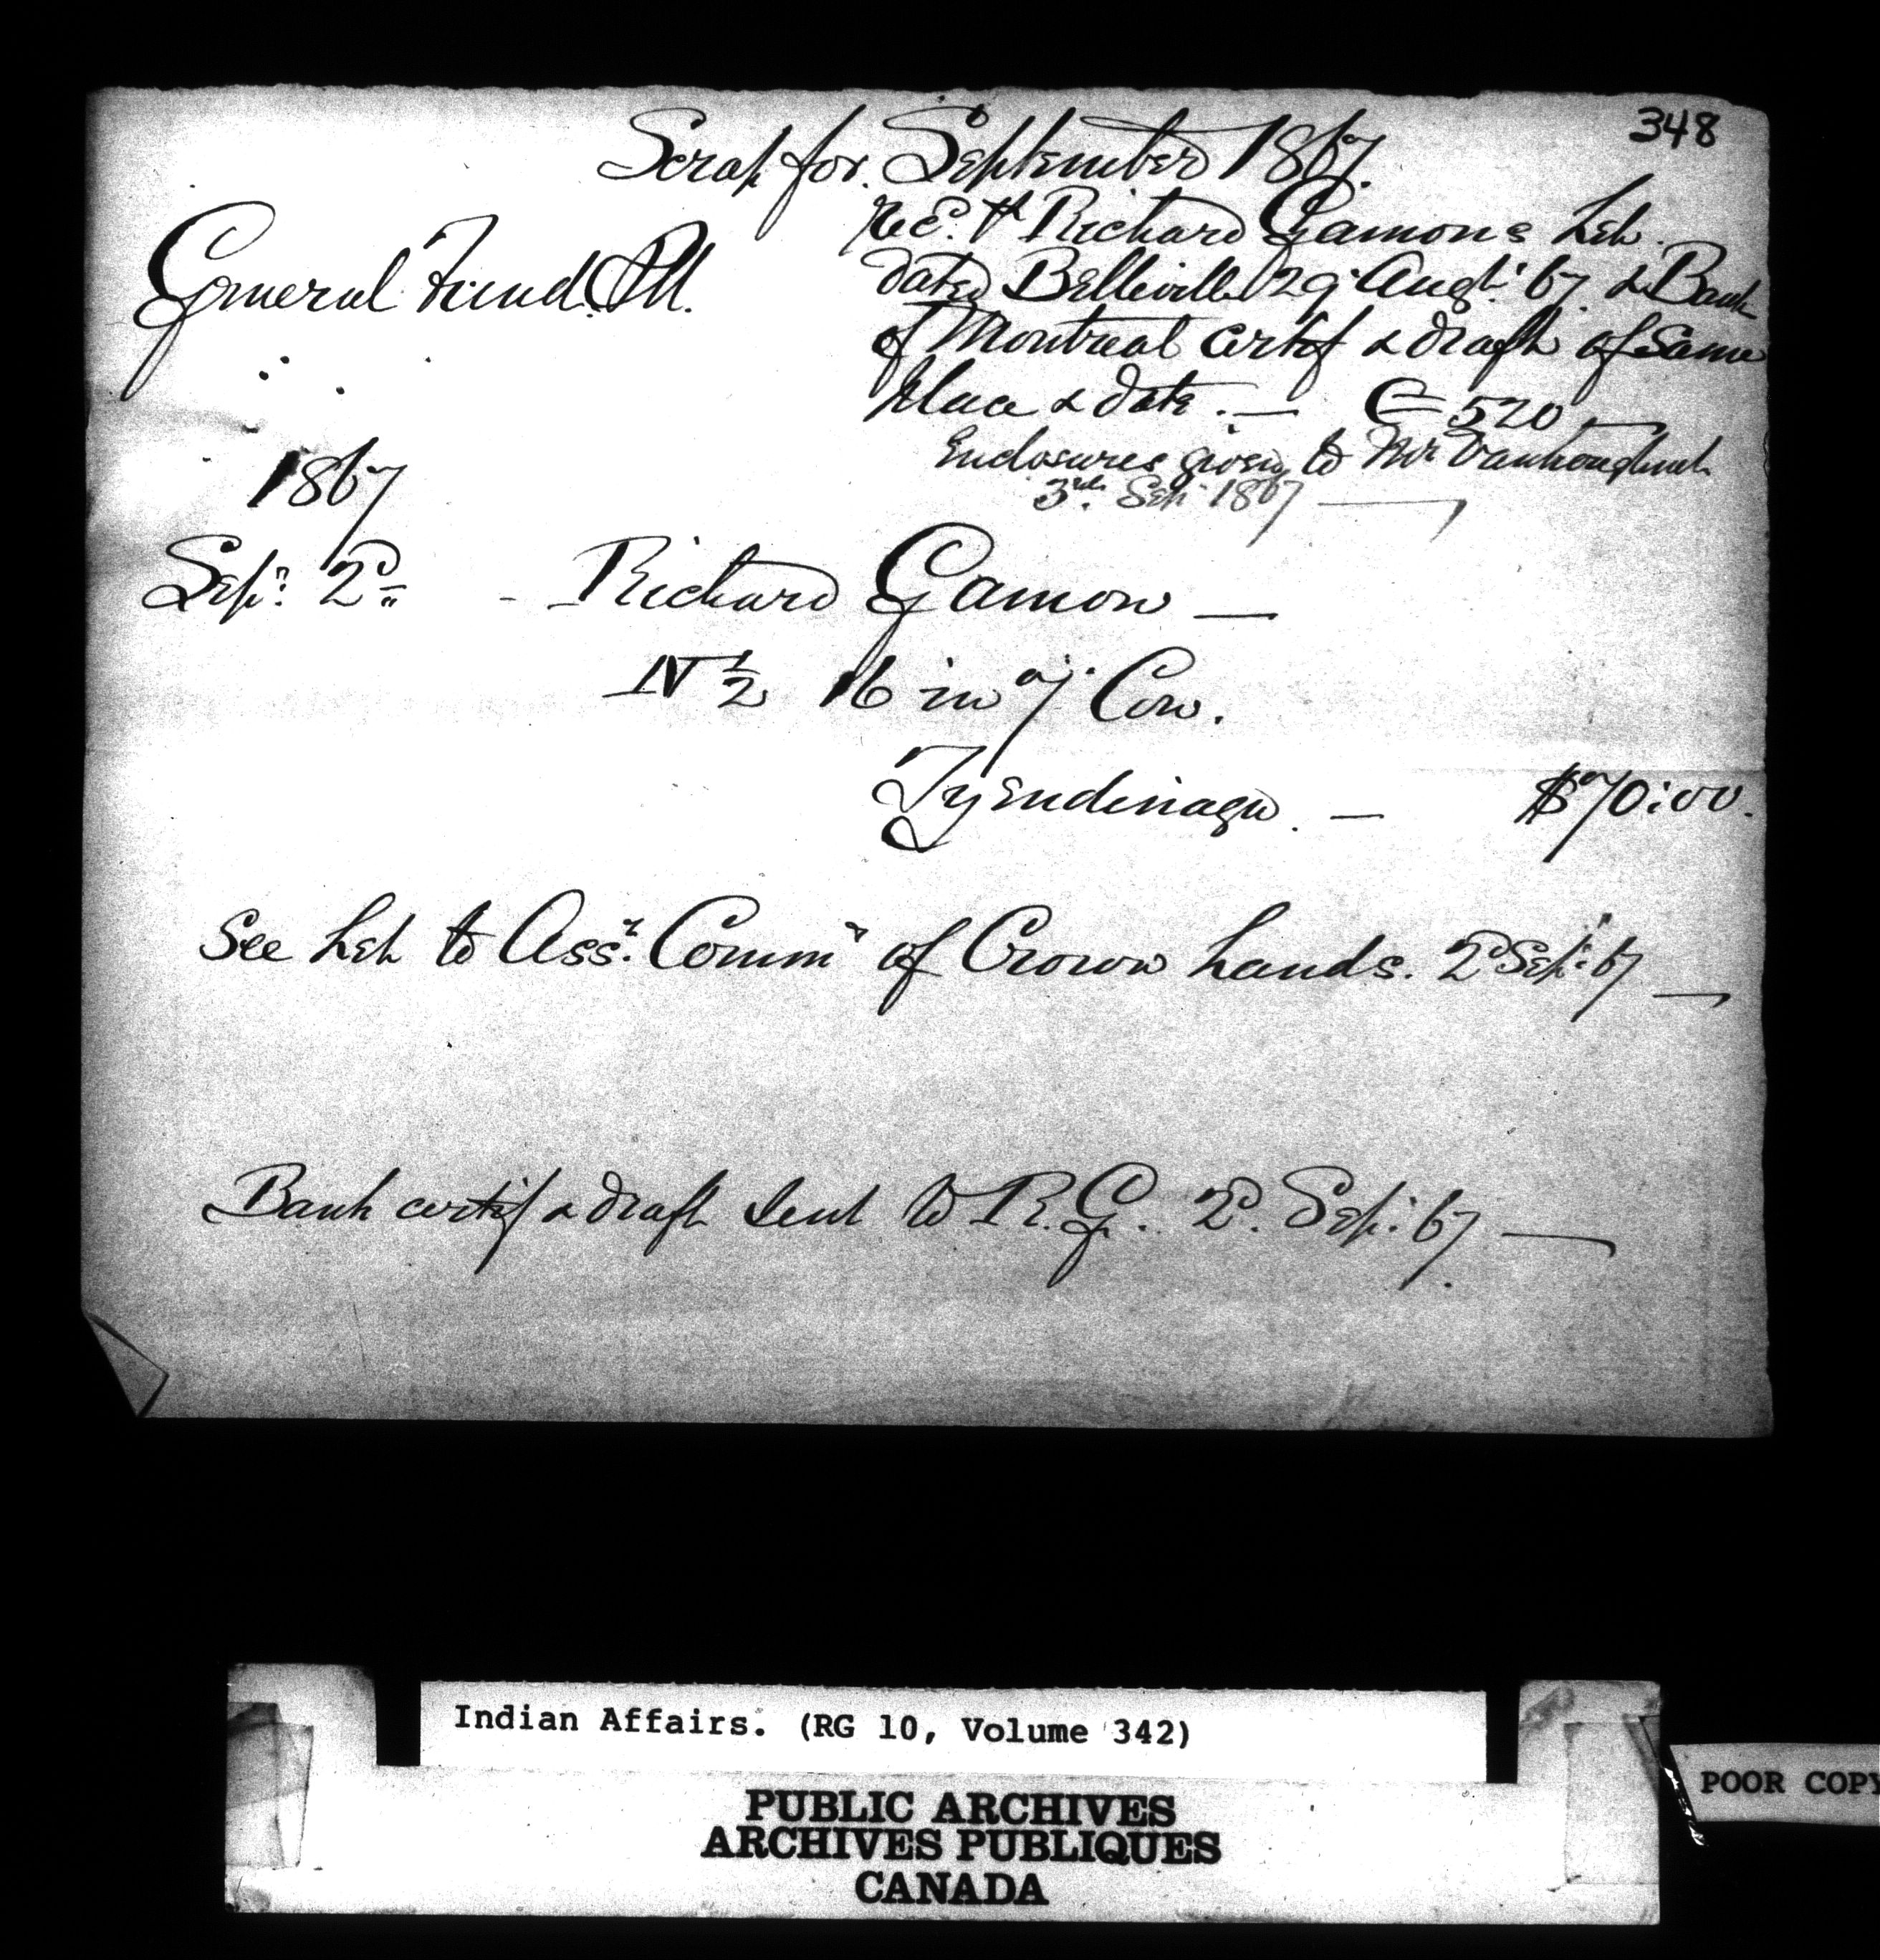 348
Scrap for September 1867.
Recd. Richard Gamons Let.
dated Belleville 29 Augt. 67. & Bank
of Montreal Certif & draft of Same
place & date. — C 520 —
Enclosures given to Mr Vankoughnet
3rd. Sep. 1867 —
General Fund.
1867
Sepr. 2d. - Richard Gamon —
N ½ 16 in 7 Con.
Tyendinaga. — $70.00.
See Let to Asst. Commr of Crown Lands. 2d Sep. 67 —
Bank certif & draft sent to R. G. 2d. Sep. 67 —
Indian Affairs. (RG 10, Volume 342)
PUBLIC ARCHIVES
ARCHIVES PUBLIQUES
CANADA
POOR COPY